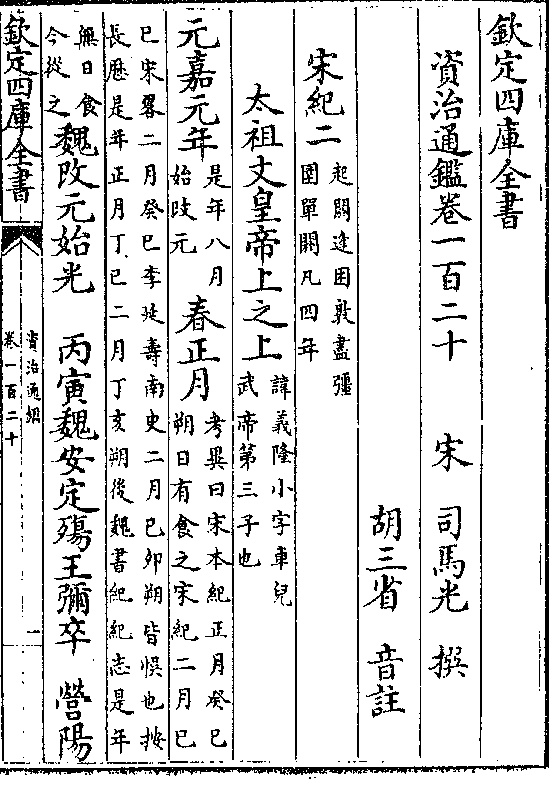 欽定四庫全書
資治通鑑卷一百二十 宋 司馬光 撰
胡三省 音註
宋紀二
起閼逢困敦盡彊
圉單閼凡四年
太祖文皇帝上之上
諱義隆小字車兒
武帝第三子也
元嘉元年
是年八月
始改元
春正月
考異曰宋本紀正月癸巳
朔日有食之宋紀二月己
巳宋畧二月癸巳李延壽南史二月己卯朔皆悮也按
長歷是年正月丁巳二月丁亥朔後魏書紀紀志是年
無日食
今從之
魏改元始光 丙寅魏安定殤王彌卒 營陽
欽定四庫全書
資治通鑑
卷一百二十
一